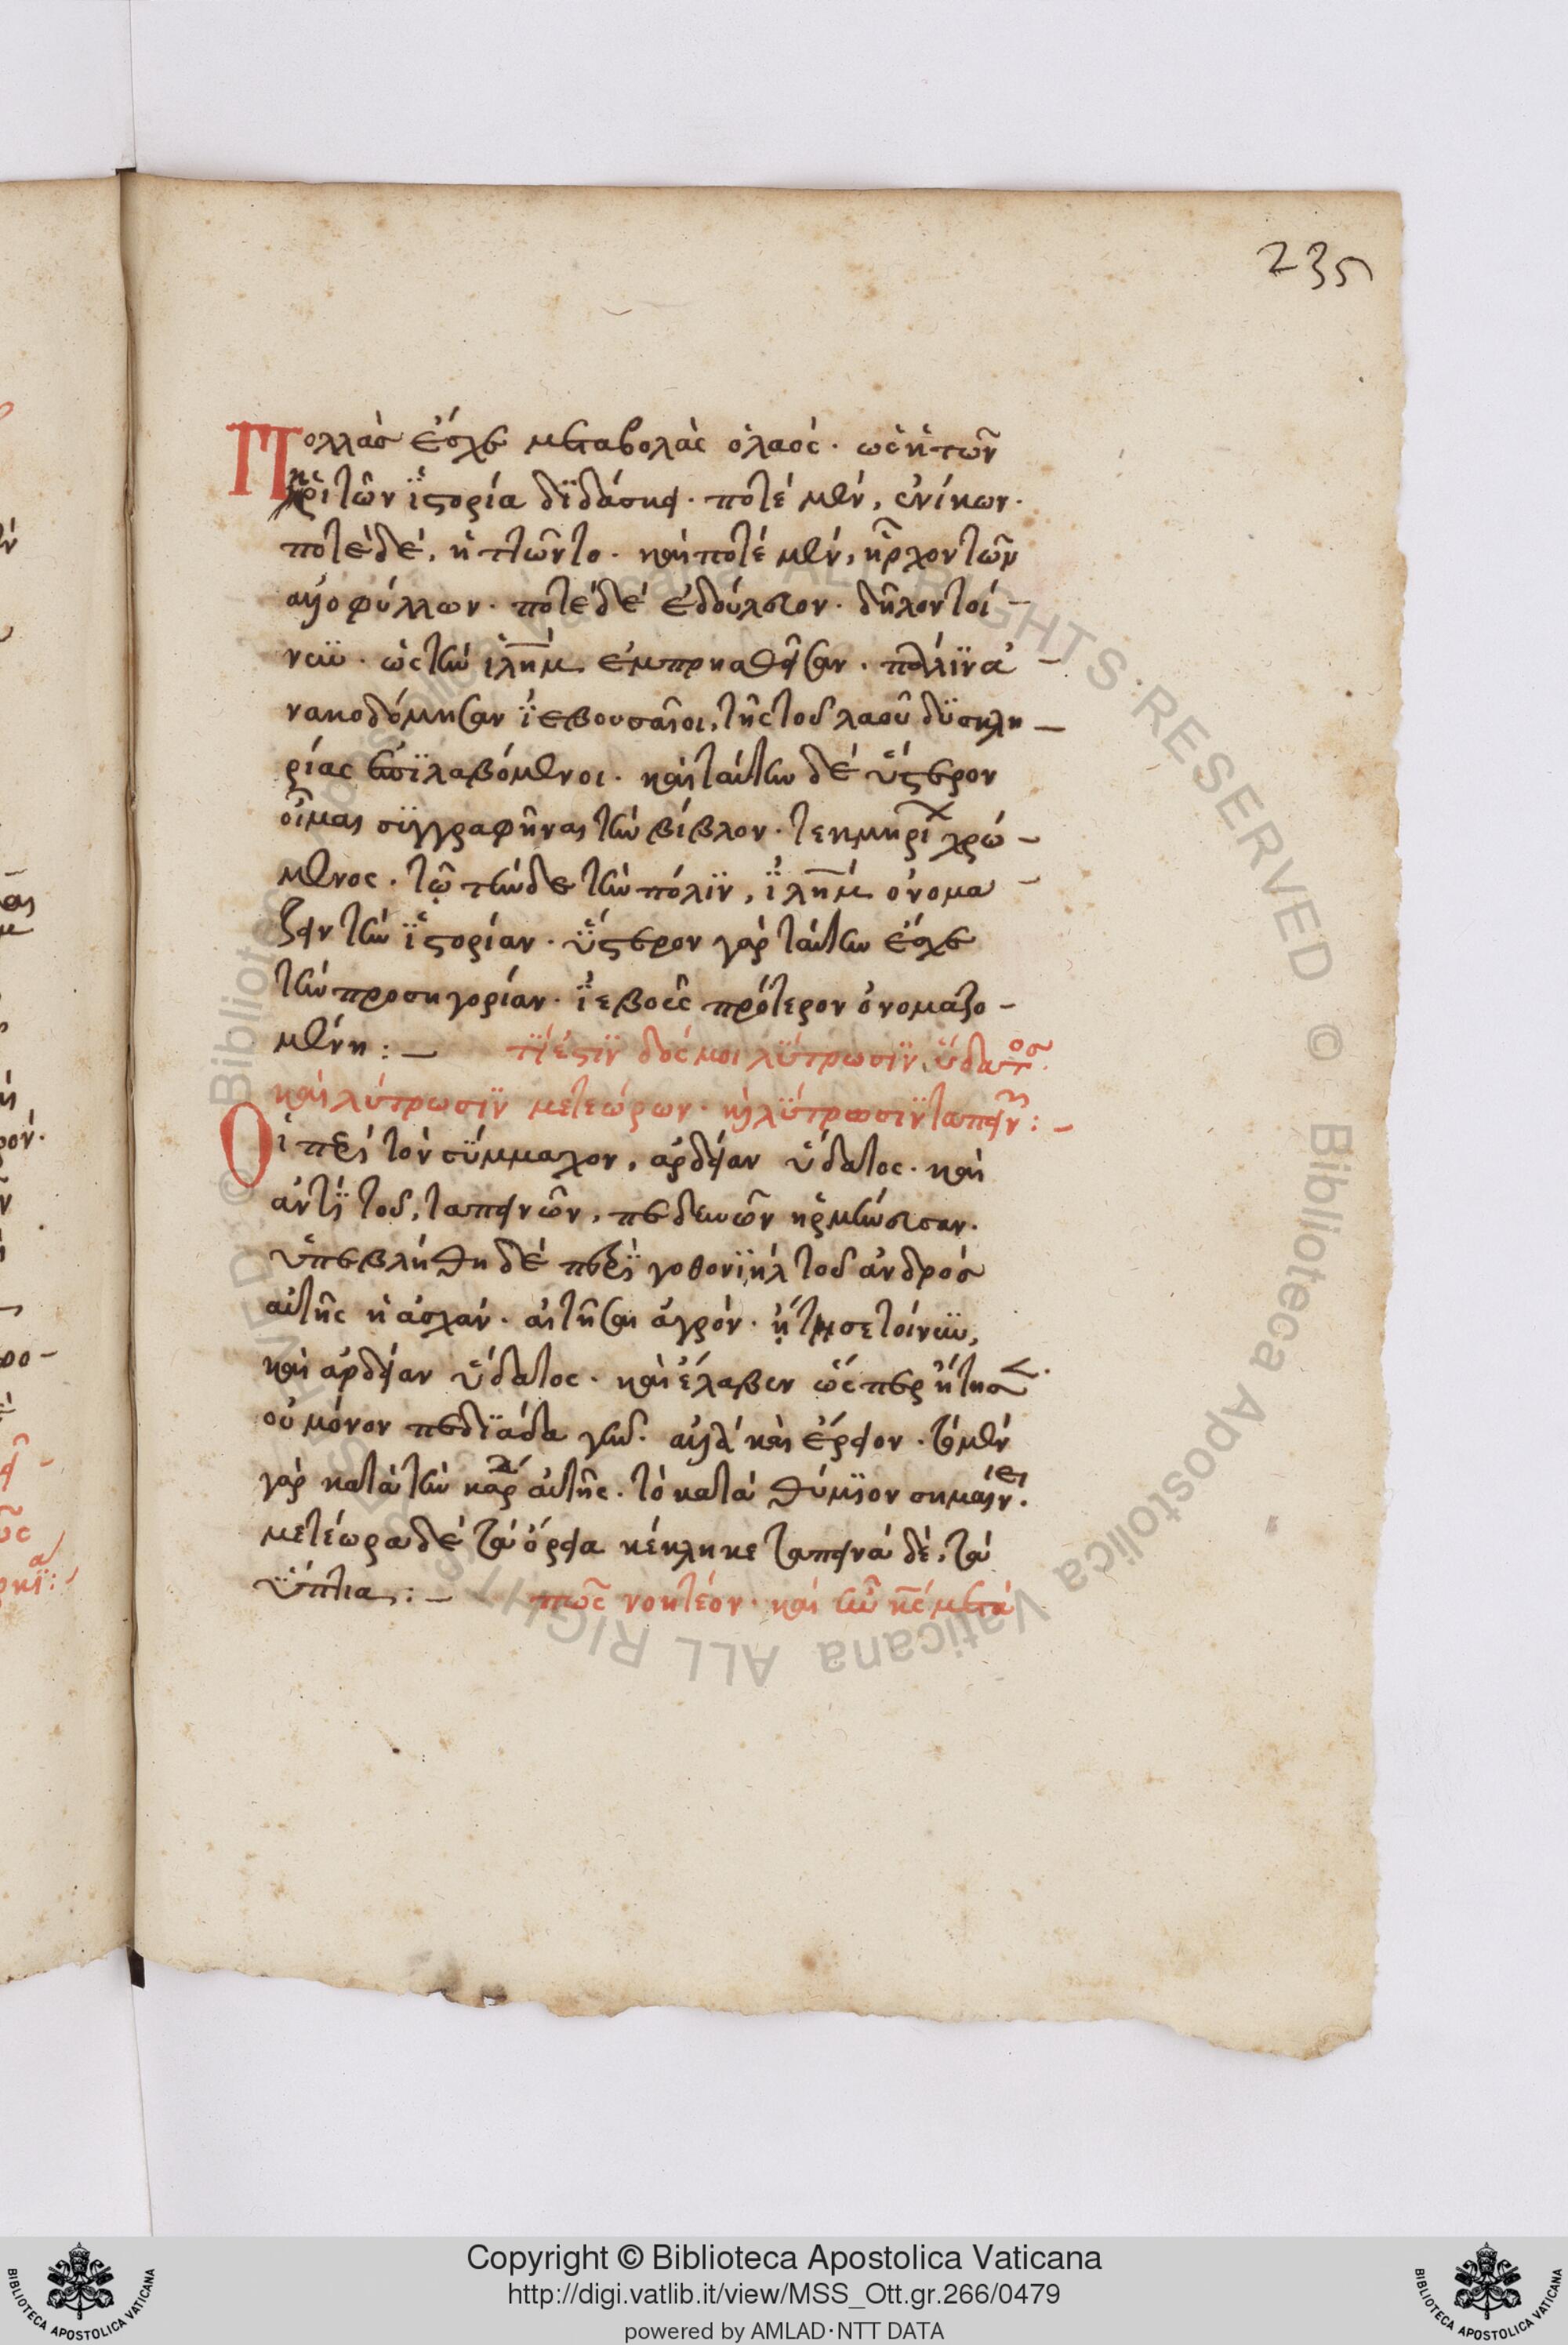 235
Πολλὰσ ἔσχε μεταβολὰς ὁ λαός· ὡς ἡ τῶν
κριτῶν ἱστορία διδάσκει· ποτὲ μὲν, ἐνίκων·
ποτὲ δὲ, ἡττῶντο· καὶ ποτὲ μὲν, ἦρχον τῶν
ἀλλοφύλλων· ποτὲ δὲ ἐδούλευον· δῆλον τοί-
νυν· ὡς τὴν ἰλημ ἐμπρησθεῖσαν· πάλιν ἀ-
νακοδόμησαν ἰεβουσαῖοι, τῆς τοῦ λαοῦ δυσκλη-
ρίας ἐπιλαβόμενοι· καὶ ταύτην δὲ ὕστερον
οἶμαι συγγραφῆναι τὴν βίβλον· τεκμηρί χρώ-
μενος· τῶ τήνδε τὴν πόλιν, ἰλημ ὀνομα-
ζειν τὴν ἱστορίαν· ὕστερον γὰρ ταύτην ἔσχε
τὴν προσηγορίαν· ἰεβοὺς πρότερον ὀνομαζο-
μένη:- τί ἐστιν δός μοι λύτρωσιν ὕδατος·
καὶ λύτρωσιν μετεώρων· καὶ λύτρωσιν ταπειν:-
Ὁ περὶ τὸν σύμμαχον, ἀρδείαν ὕδατος· καὶ
ἀντὶ τοῦ, ταπεινῶν, πεδεινῶν ἡρμήνευσαν·
ὑπεβλήθη δὲ παρὰ γοθονιὴλ τοῦ ἀνδρὸσ
αὐτῆς ἡ ἀσχάν· αἰτῆσαι ἀγρόν· ἤτησε τοίνυν,
καὶ ἀρδείαν ὕδατος· καὶ ἔλαβεν ὥσπερ ἤτησεν·
οὐ μόνον πεδιάδα γῆν· ἀλλὰ καὶ ὄρειον· τὸ μὲν
γὰρ κατὰ τὴν καρδίαν αὐτῆς· τὸ καταθύμιον σημαίνει·
μετέωρα δὲ τὰ ὄρεια κέκληκε ταπεινὰ δὲ, τὰ
ὕπτια:- πῶς νοητέον· καὶ ἦν κς μετὰ
Copyright © Biblioteca Apostolica Vaticana
http://digi.vatlib.it/view/MSS_Ott.gr.266/0479
powered by AMLAD·NTT DATA